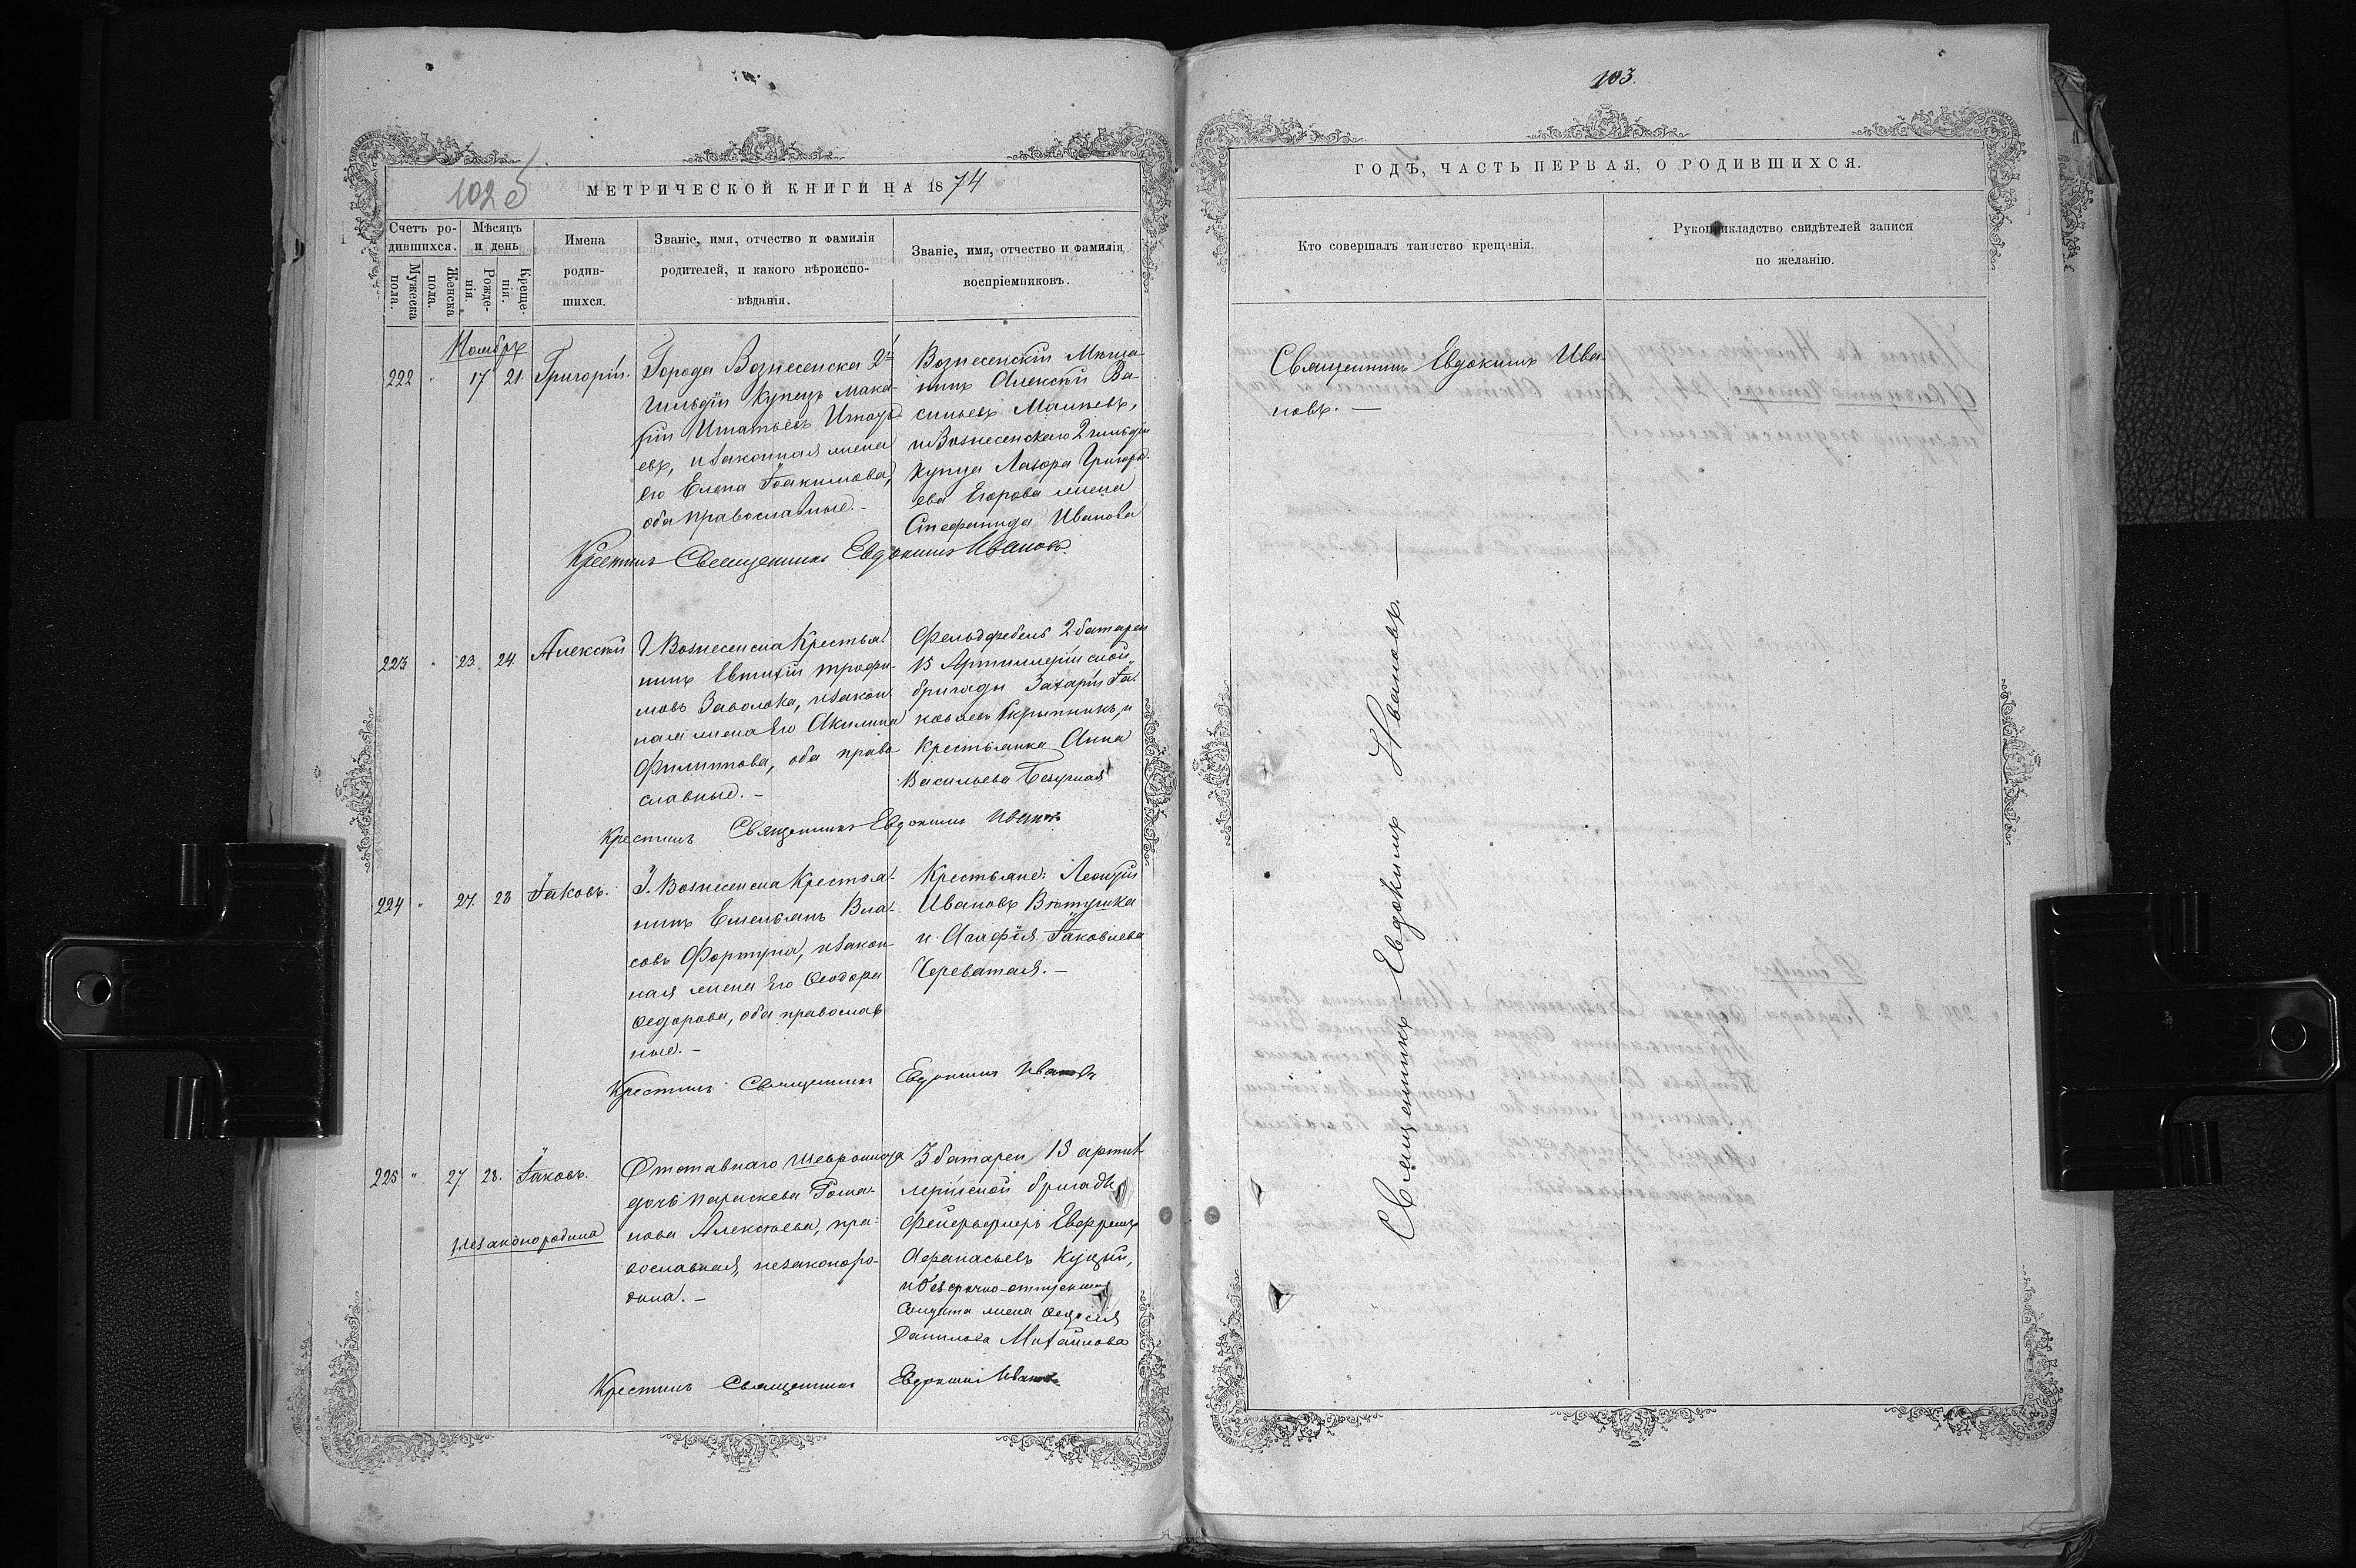 102 об
МЕТРИЧЕСКОЙ КНИГИ НА 1874
Счетъ ро-
дившихся.
Мужеска
пола.
Женска
пола.
Мѣсяцъ
и день
Рожде-
нія.
Креще-
нія.
Имена
родив-
шихся.
Званіе, имя, отчество и фамилія
родителей, и какого вѣроиспо-
вѣданія.
Званіе, имя, отчество и фамилія
воспріемниковъ.
Ноябрь
222 " 17 21. Григорій.
Города Вознесенска 2й
Гильдіи Купецъ Мака-
рій Игнатьевъ
евъ, и законная жена
его Елена Іоакимова,
оба православные. -
Вознесенскій Мѣща-
нинъ Алексѣй Ва-
сильевъ
и Вознесенскаго 2 гильдіи
Купца Лазора Григорь-
ева Егорова жена
Стефанида Иванова
Крестилъ Священникъ Евдокимъ Ивановъ.
223 " 23. 24. Алексѣй
Г. Вознесенска Крестья-
нинъ Евтихій Трофи-
мовъ Заволока, и закон
ная жена Его Акилина
Филиппова, оба право
славные. -
Фельдфебель 2 батареи
15 Артиллерійской
бригады Захарій Іа-
ковлевъ Скрыпникъ, и
Крестьянка Анна
Васильева
Крестилъ Священникъ Евдокимъ Ивановъ
224 " 27. 28 Іаковъ.
Г. Вознесенска Крестья-
нинъ Емельянъ Вла-
совъ Фортуна, и закон
ная жена Его Ѳеодора
Ѳедорова, оба православ
ные. -
Крестьяне: Леонтій
Ивановъ Вѣтушка
и Агафія Іаковлева
Череватая. -
Крестилъ Священникъ Евдокимъ Ивановъ
225 " 27. 28. Іаковъ.
незаконородна
Отставнаго
дочь Параскева Рома-
нова Алексѣева, пра-
вославная, незаконоро-
дила. -
3 батареи 15 артил-
лерійской бригады
фейерверкеръ
Аѳанасьевъ Куцый,
и безсрочно-отпускнаго
Солдата жена Ѳедосія
Данилова Михайлова
Крестилъ Священникъ Евдокимъ Ивановъ
103.
ГОДЪ, ЧАСТЬ ПЕРВАЯ, О РОДИВШИХСЯ.
Кто совершалъ таинство крещенія.
Рукоприкладство свидѣтелей записи
по желанію.
Священникъ Евдокимъ Ива-
новъ. -
Священникъ Евдокимъ Ивановъ. -